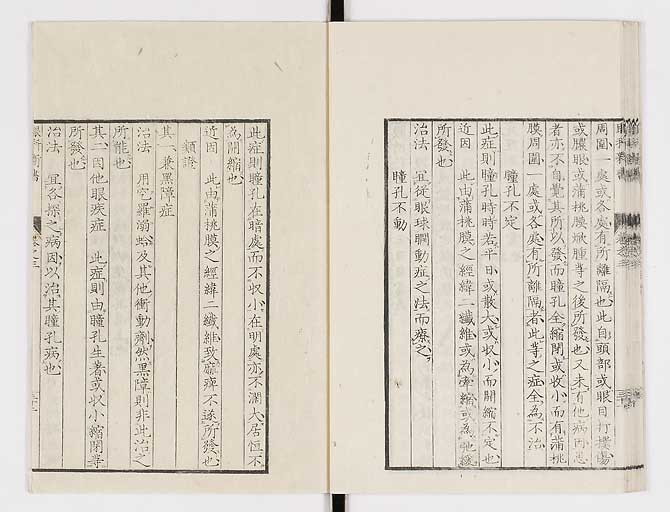 周圍一處或各處有所離隔也此自頭部或眼目打撲傷
或膿眼或蒲桃膜焮腫等之後所發也又未有他病因患
者亦不自覺其所以發而瞳孔全縮閉或收小而有蒲桃
膜周圍一處或各處有所離隔者此等之症全為不治
瞳孔不定
此症則瞳孔時時若平日或散大或收小而開縮不定也
近因 此由蒲桃膜之經緯二纖維或為牽縮或為弛緩
所發也
治法 宜從眼球瞤動症之法而療之
瞳孔不動
此症則瞳孔在暗處而不收小在明處亦不濶大居恒不
為開縮也
近因 此由蒲桃膜之經緯二纖維致麻痺不遂所發也
類證
其一兼黑障症
治法 用它羅滃蚡及其他衝動劑然黑障則非此治之
所能也
其二因他眼疾症 此症則由瞳孔生著或收小縮閉等
所發也
治法 宜各探之病因以治其瞳孔病也
眼科新書
卷之三